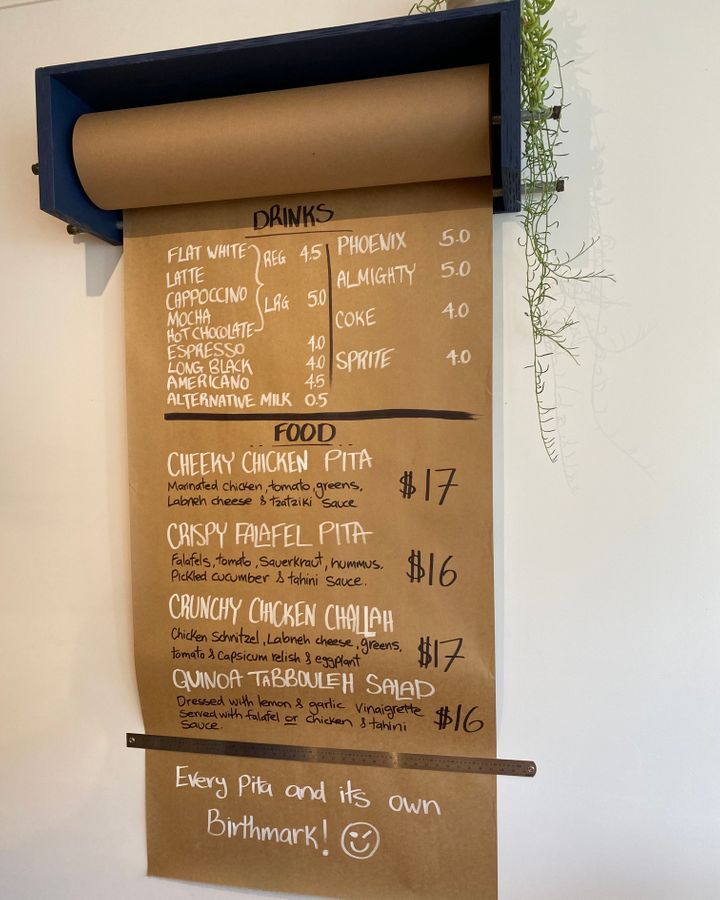 DRINKS
FLAT WHITE
LATTE
CAPPOCCINO
MOCHA
HOT CHOCOLATE
REG 4.5
LRG 5.0
ESPRESSO 4.0
LONG BLACK 4.0
AMERICANO 4.5
ALTERNATIVE MILK 0.5
PHOENIX 5.0
ALMIGHTY 5.0
COKE 4.0
SPRITE 4.0
FOOD
CHEEKY CHICKEN PITA
Marinated chicken, tomato, greens,
Labneh cheese & tzatziki sauce
$17
CRISPY FALAFEL PITA
Falafels, tomato, sauerkraut, hummus.
Pickled cucumber & tahini sauce.
$16
CRUNCHY CHICKEN CHALLAH
Chicken Schnitzel, Labneh cheese, greens,
tomato & capsicum relish & eggplant
$17
QUINOA TABBOULEH SALAD
Dressed with lemon & garlic vinaigrette
Served with falafel or chicken & tahini
sauce.
$16
Every Pita and its own
Birthmark!